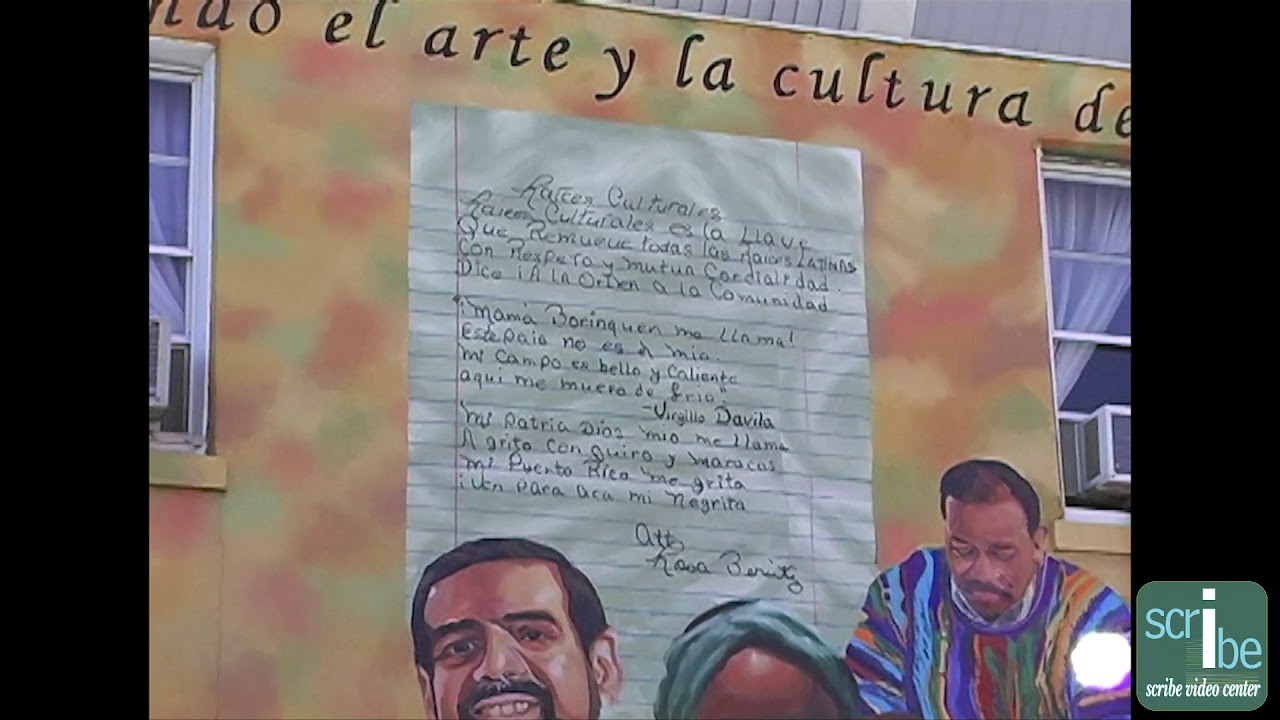 el arte y la cultura de
Raíces Culturales
Raices Culturales es la Llave
Que Remueve todas las Raices LATINAS
Con Respeto y mutua Cordialidad.
Dice ¡A la Orden a la Comunidad
"¡Mamá Borinquen me llama!
Este pais no es el mio.
mi Campo es bello y Caliente
aqui me muero de frio."
-Virgilio Davila
mi patria Dios mio me llama
A grito Con guiro y maracas
mi Puerto Rico me grita
¡Ven para aca mi Negrita
Att,
Rosa Benitz
scribe
scribe video center